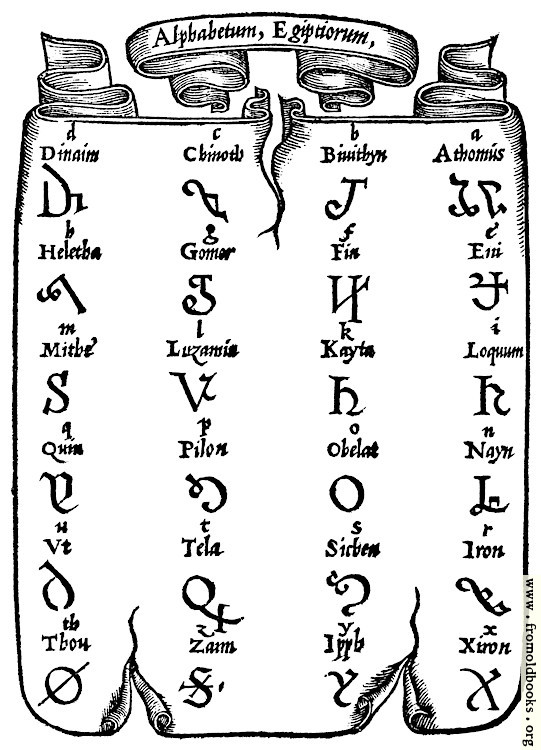 Alphabetum, Egiptiorum,
d c b a
Dinaim Chinoth Binithyn Athomus
h g f e
Heletha Gomor Fin Eni
m l k i
Mithe Luzamin Kayta Loquum
q p o n
Quin Pilon Obelat Nayn
u t s r
Vt Tela Sichen Iron
th z y x
Thou Zaim Ipph Xiron
www.fromoldbooks.org